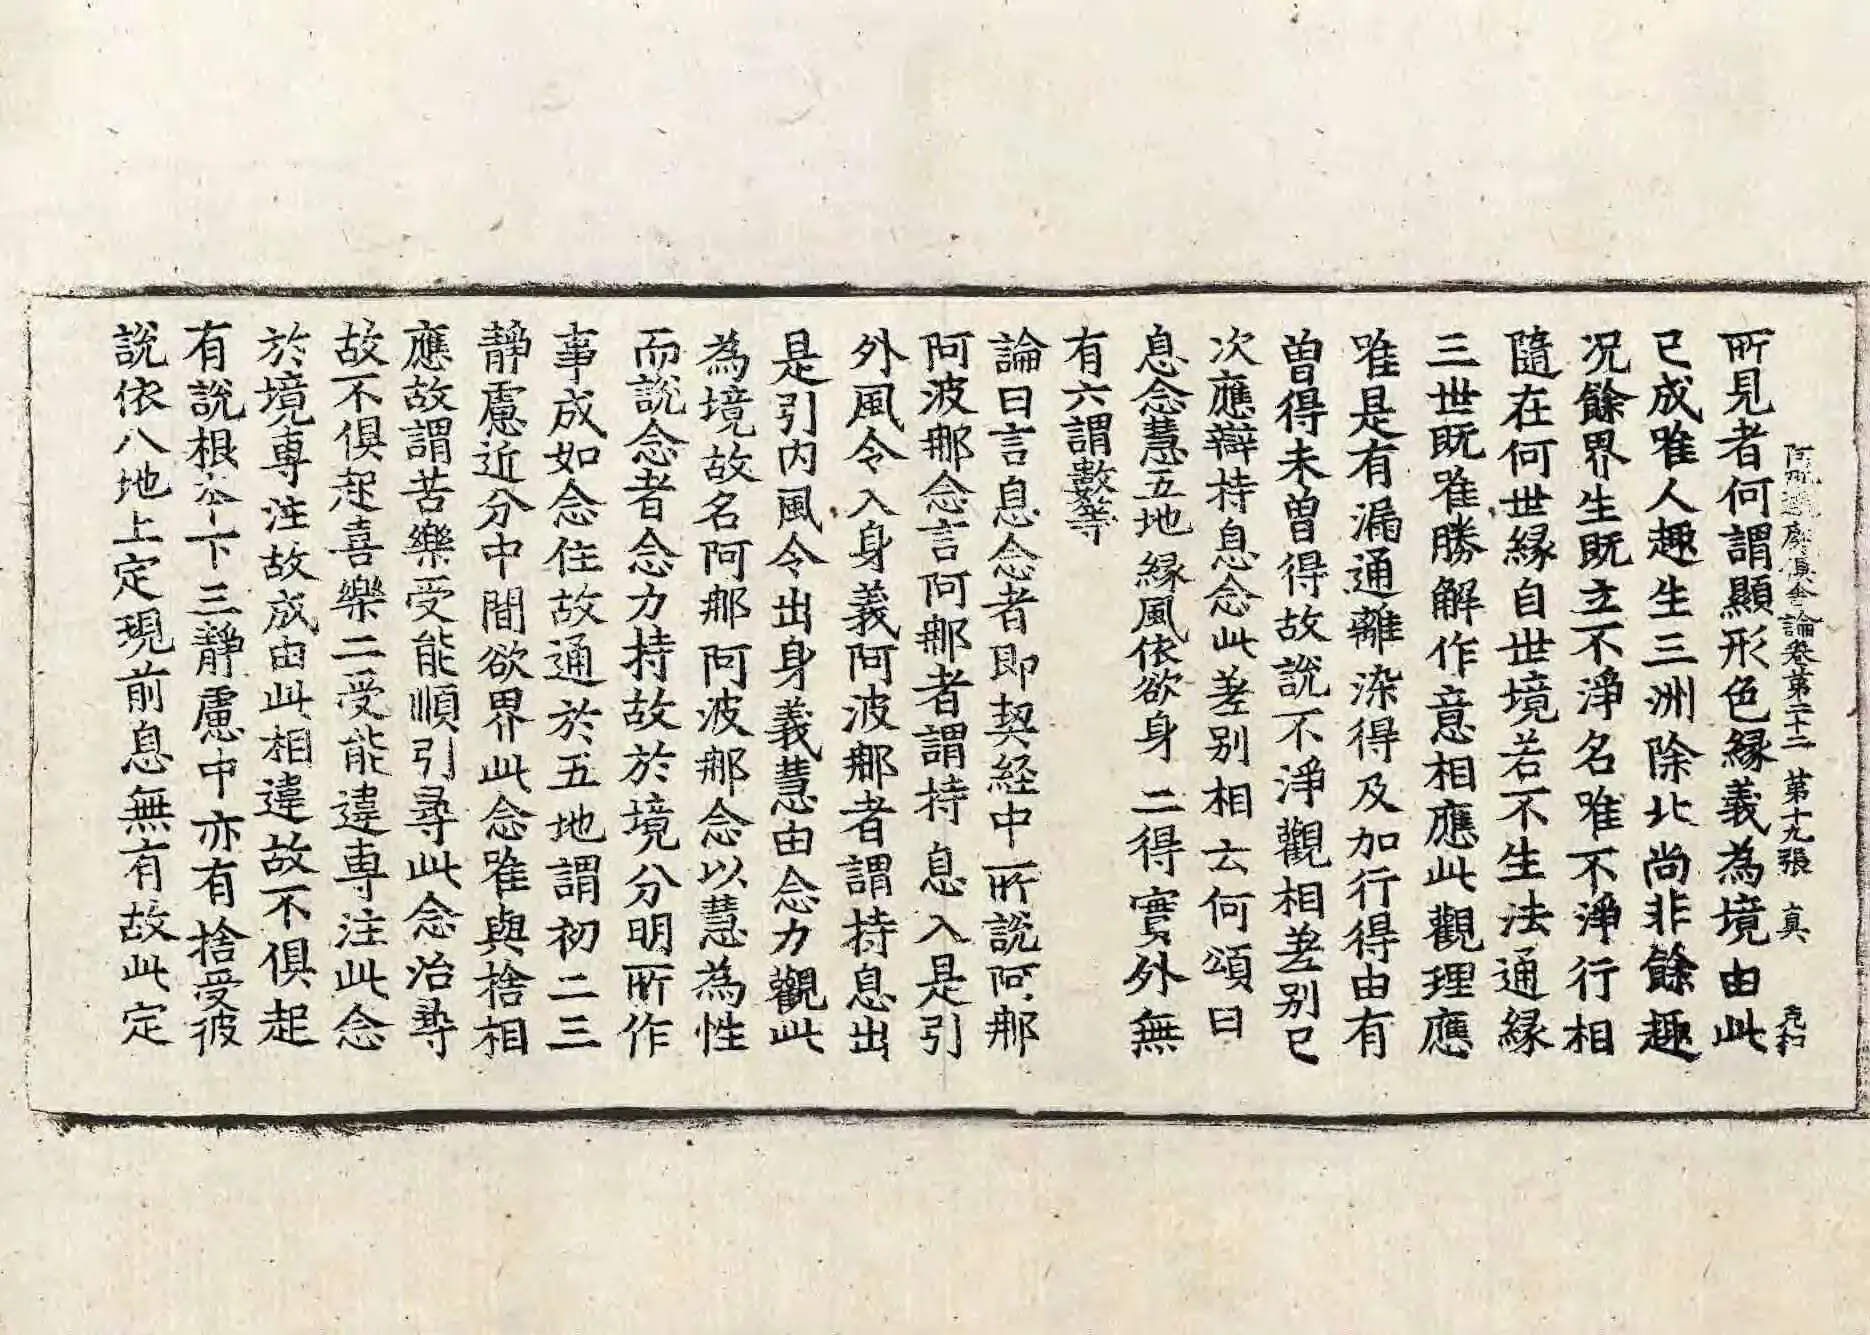 阿毗達磨俱舍論卷第二十二 第十九張 真
所見者何謂顯形色緣義為境由此
已成唯人趣生三洲除北尚非餘趣
况餘界生既立不淨名唯不淨行相
隨在何世緣自世境若不生法通緣
三世既唯勝解作意相應此觀理應
唯是有漏通離染得及加行得由有
曾得未曾得故說不淨觀相差別已
次應辯持息念此差別相云何頌曰
息念慧五地 緣風依欲身 二得實外無
有六謂數等
論曰言息念者即契經中所說阿那
阿波那念言阿那者謂持息入是引
外風令入身義阿波那者謂持息出
是引內風令出身義慧由念力觀此
為境故名阿那阿波那念以慧為性
而說念者念力持故於境分明所作
事成如念住故通於五地謂初二三
靜慮近分中間欲界此念唯與捨相
應故謂苦樂受能順引尋此念治尋
故不俱起喜樂二受能違專注此念
於境專注故成由此相違故不俱起
有說根本下三靜慮中亦有捨受彼
說依八地上定現前息無有故此定